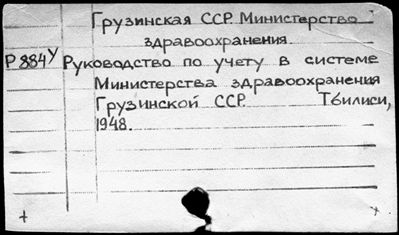 Грузинская ССР. Министерство
здравоохранения.
Р 884У Руководство по учету в системе
Министерства здравоохранения
Грузинской ССР. Тбилиси,
1948.